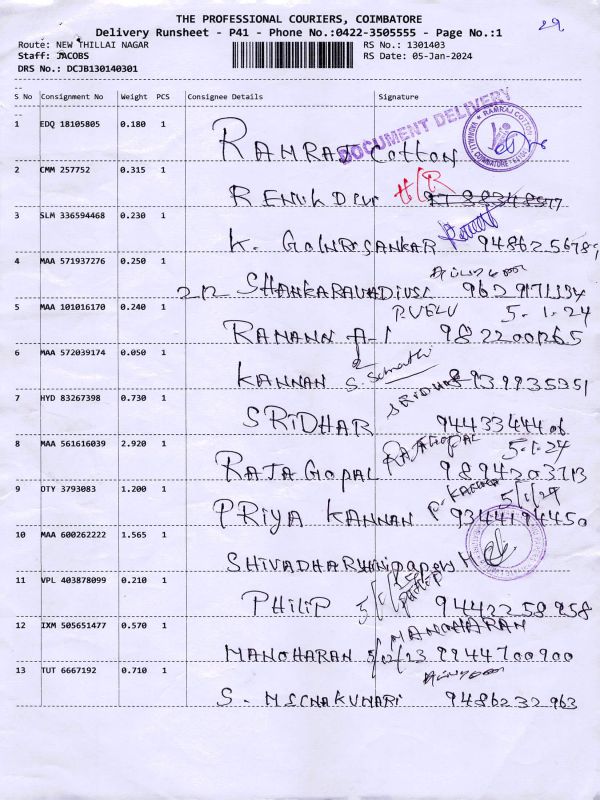 THE PROFESSIONAL COURIERS, COIMBATORE
Delivery Runsheet - P41 - Phone No.:0422-3505555 - Page No.:1
29
Route: NEW THILLAI NAGAR
RS No.: 1301403
Staff: JACOBS
RS Date: 05-Jan-2024
DRS No.: DCJB130140301
S No Consignment No Weight PCS Consignee Details Signature
DOCUMENT DELIVERY
RAMRAJ COTTON
COIMBATORE
1 EDQ 18105805 0.180 1
RAMRAJ COTTON
2 CMM 257752 0.315 1
RENUK DEVI H/R
3 SLM 336594468 0.230 1
K. GOWRISANKAR
4 MAA 571937276 0.250 1
212 SHANKARAVADIVEL
5 MAA 101016170 0.240 1
P.VELU 5.1.24
RAMANN A-1 9822001265
6 MAA 572039174 0.050 1
KANNAN
7 HYD 83267398 0.730 1
SRIDHAR
SRIDHAR
8 MAA 561616039 2.920 1
RAJAGOPAL 5.1.24
RAJA GOPAL 9894203713
9 OTY 3793083 1.200 1
5/1/24
PRIYA KANNAN 9344194450
10 MAA 600262222 1.565 1
11 VPL 403878099 0.210 1
PHILIP
PHILIP 9442258958
12 IXM 505651477 0.570 1
MANOHARAN
MANOHARAN 9944700900
13 TUT 6667192 0.710 1
S. MEENAKUMARI 9486232963